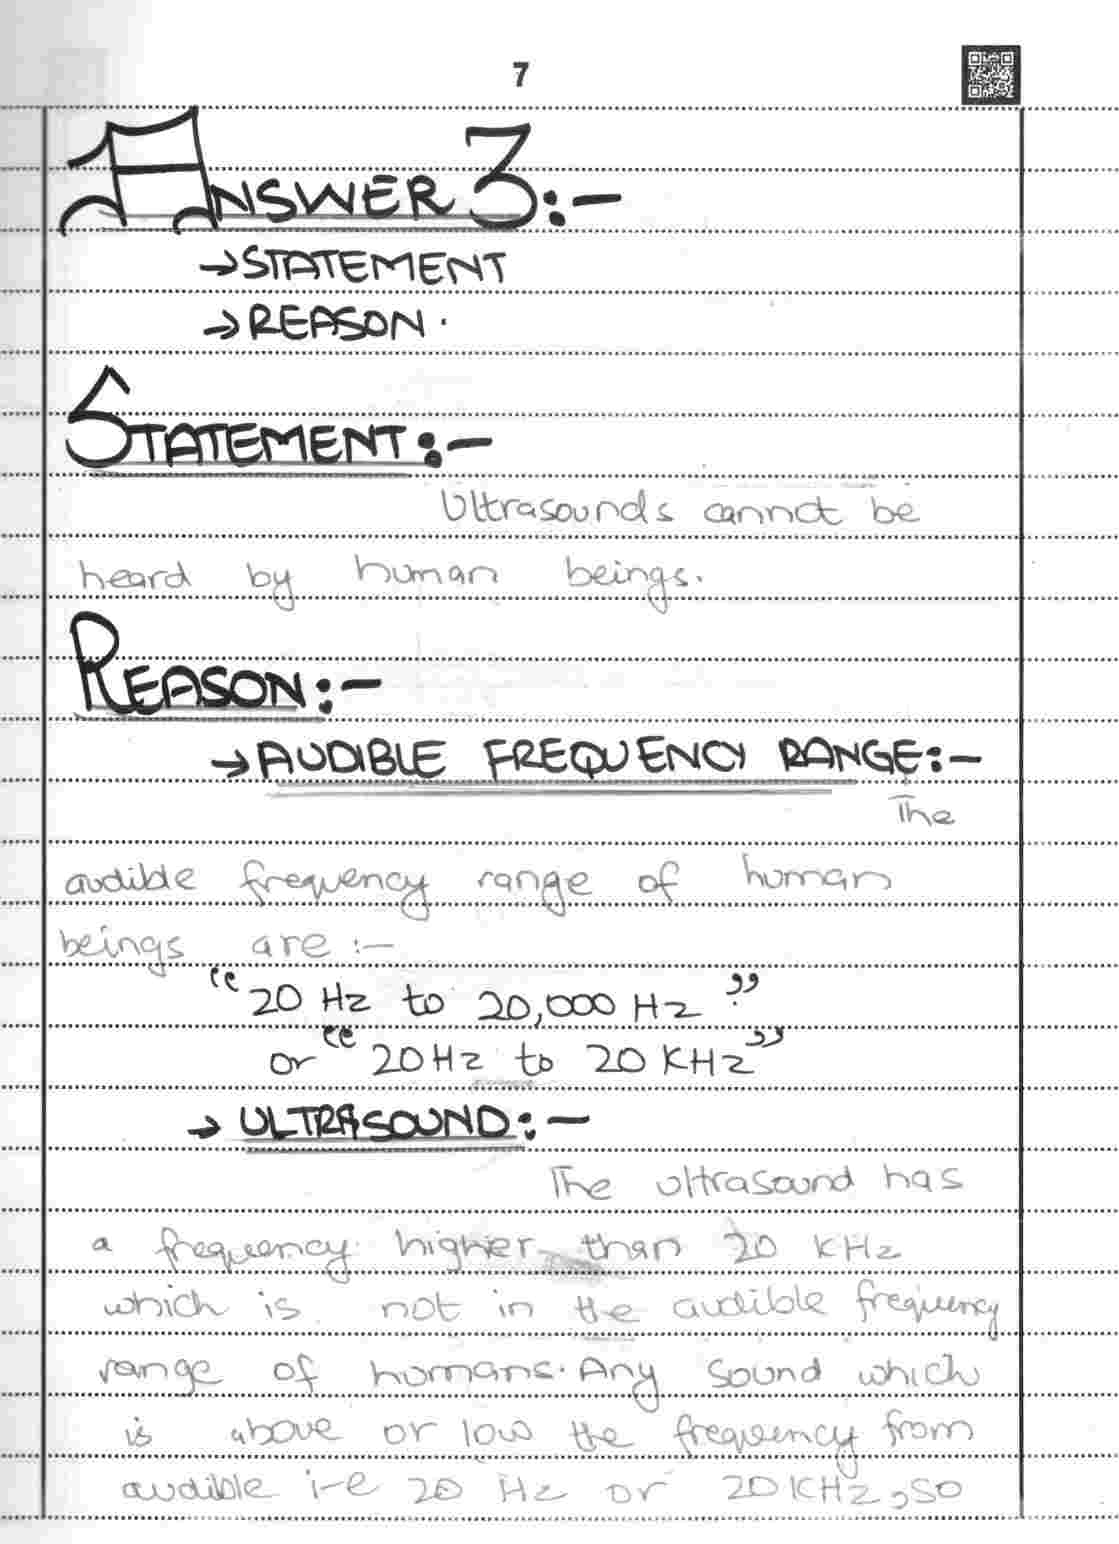 7
ANSWER 3:-
→STATEMENT
→REASON.
STATEMENT:-
Ultrasounds cannot be
heard by human beings.
REASON:-
→AUDIBLE FREQUENCY RANGE:-
The
audible frequency range of human
beings are:-
"20 Hz to 20,000 Hz"
or "20Hz to 20 KHz"
→ ULTRASOUND:-
The ultrasound has
a frequency higher than 20 KHz
which is not in the audible frequency
range of humans. Any sound which
is above or low the frequency from
audible i-e 20 Hz or 20KHz, so